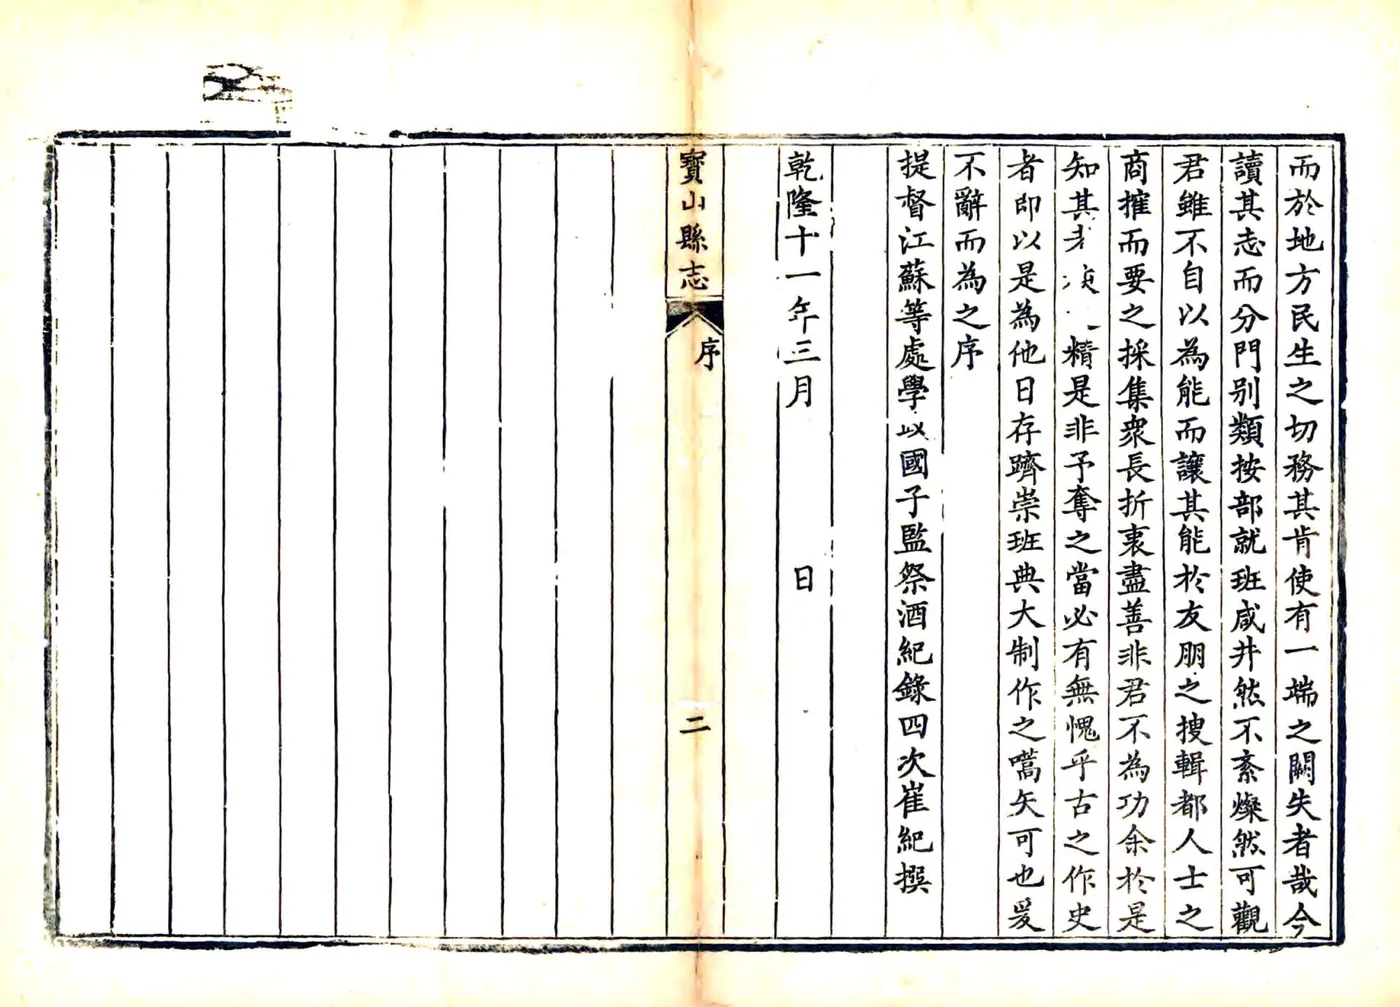 而於地方民生之切務其肯使有一端之闕失者哉今
讀其志而分門別類按部就班咸井然不紊燦然可觀
君雖不自以為能而讓其能於友朋之搜輯都人士之
商搉而要之採集衆長折衷盡善非君不為功余於是
知其考 精是非予奪之當必有無愧乎古之作史
者即以是為他日存躋崇班典大制作之嚆矢可也爰
不辭而為之序
提督江蘇等處學政國子監祭酒紀錄四次崔紀撰
乾隆十一年三月 日
寶山縣志 序 二